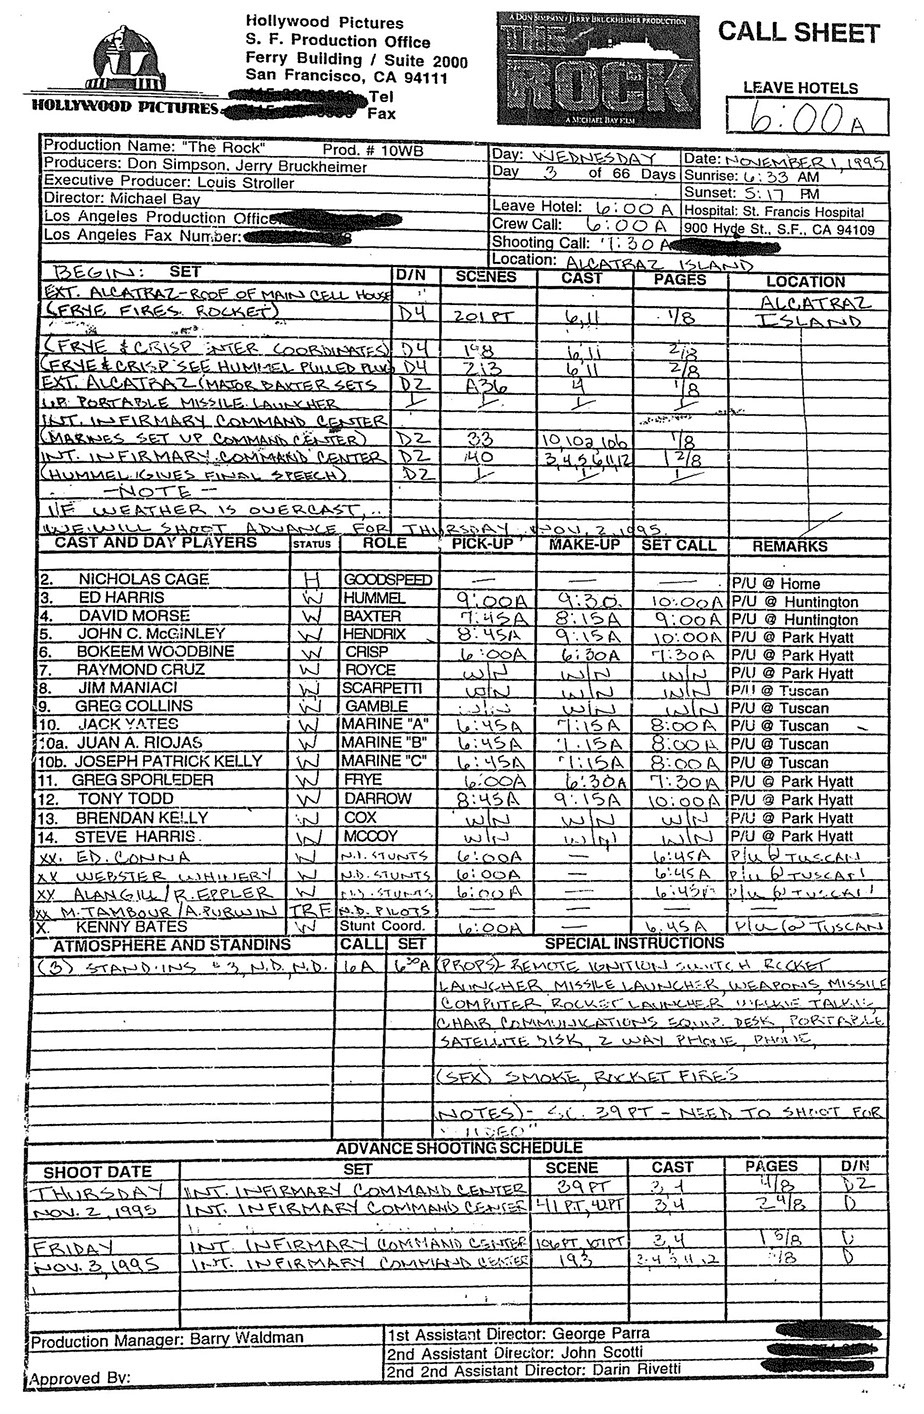 Hollywood Pictures
S. F. Production Office
Ferry Building / Suite 2000
San Francisco, CA 94111
Tel
Fax
HOLLYWOOD PICTURES
A DON SIMPSON / JERRY BRUCKHEIMER PRODUCTION
THE ROCK
A MICHAEL BAY FILM
CALL SHEET
LEAVE HOTELS
6:00A
Production Name: "The Rock" Prod. # 10WB
Producers: Don Simpson, Jerry Bruckheimer
Executive Producer: Louis Stroller
Director: Michael Bay
Los Angeles Production Office
Los Angeles Fax Number:
Day: WEDNESDAY
Day 3 of 66 Days
Leave Hotel: 6:00A
Crew Call: 6:00A
Shooting Call: 7:30A
Location: ALCATRAZ ISLAND
Date: NOVEMBER 1, 1995
Sunrise: 6:33 AM
Sunset: 5:17 PM
Hospital: St. Francis Hospital
900 Hyde St., S.F., CA 94109
BEGIN: SET D/N SCENES CAST PAGES LOCATION
EXT. ALCATRAZ-ROOF OF MAIN CELL HOUSE ALCATRAZ
(FRYE FIRES ROCKET) D4 201PT 6,11 1/8 ISLAND
(FRYE & CRISP ENTER COORDINATES) D4 198 6,11 2/8
(FRYE & CRISP SEE HUMMEL PULLED PLUG D4 213 6,11 2/8
EXT. ALCATRAZ (MAJOR BAXTER SETS D2 A36 4 1/8
UP PORTABLE MISSILE LAUNCHER
INT. INFIRMARY COMMAND CENTER
(MARINES SET UP COMMAND CENTER) D2 33 10,10a,10b 1/8
INT. INFIRMARY COMMAND CENTER D2 40 3,4,5,6,11,12 1 2/8
(HUMMEL GIVES FINAL SPEECH) D2
-NOTE-
IF WEATHER IS OVERCAST,
WE WILL SHOOT ADVANCE FOR THURSDAY, NOV. 2, 1995.
CAST AND DAY PLAYERS STATUS ROLE PICK-UP MAKE-UP SET CALL REMARKS
2. NICHOLAS CAGE H GOODSPEED — — — P/U @ Home
3. ED HARRIS W HUMMEL 9:00A 9:30 10:00A P/U @ Huntington
4. DAVID MORSE W BAXTER 7:45A 8:15A 9:00A P/U @ Huntington
5. JOHN C. McGINLEY W HENDRIX 8:45A 9:15A 10:00A P/U @ Park Hyatt
6. BOKEEM WOODBINE W CRISP 6:00A 6:30A 7:30A P/U @ Park Hyatt
7. RAYMOND CRUZ W ROYCE W/N W/N W/N P/U @ Park Hyatt
8. JIM MANIACI W SCARPETTI W/N W/N W/N P/U @ Tuscan
9. GREG COLLINS W GAMBLE W/N W/N W/N P/U @ Tuscan
10. JACK YATES W MARINE "A" 6:45A 7:15A 8:00A P/U @ Tuscan
10a. JUAN A. RIOJAS W MARINE "B" 6:45A 7:15A 8:00A P/U @ Tuscan
10b. JOSEPH PATRICK KELLY W MARINE "C" 6:45A 7:15A 8:00A P/U @ Tuscan
11. GREG SPORLEDER W FRYE 6:00A 6:30A 7:30A P/U @ Park Hyatt
12. TONY TODD W DARROW 8:45A 9:15A 10:00A P/U @ Park Hyatt
13. BRENDAN KELLY W COX W/N W/N W/N P/U @ Park Hyatt
14. STEVE HARRIS W MCCOY W/N W/N W/N P/U @ Park Hyatt
xx. ED. CONNA W N.D. STUNTS 6:00A — 6:45A P/U @ TUSCAN
xx WEBSTER WHINERY W N.D. STUNTS 6:00A — 6:45A P/U @ TUSCAN
xx ALAN GILL / R. EPPLER W N.D. STUNTS 6:00A — 6:45A P/U @ TUSCAN
xx M. TAMBOUR / A. PURWIN TRF N.D. PILOTS — — —
X. KENNY BATES W Stunt Coord. 6:00A — 6:45A P/U @ TUSCAN
ATMOSPHERE AND STANDINS CALL SET SPECIAL INSTRUCTIONS
(3) STAND-INS #3, N.D., N.D. 6A 630A (PROPS)- REMOTE IGNITION SWITCH ROCKET
LAUNCHER MISSILE LAUNCHER, WEAPONS, MISSILE
COMPUTER, ROCKET LAUNCHER WALKIE TALKIE,
CHAIR COMMUNICATIONS EQUIP. DESK, PORTABLE
SATELLITE DISK, 2 WAY PHONE, PHONE,
(SFX) SMOKE, ROCKET FIRES
(NOTES)- SC. 39PT - NEED TO SHOOT FOR
"VIDEO"
ADVANCE SHOOTING SCHEDULE
SHOOT DATE SET SCENE CAST PAGES D/N
THURSDAY INT. INFIRMARY COMMAND CENTER 39PT 3,4 4/8 D2
NOV. 2, 1995 INT. INFIRMARY COMMAND CENTER 41PT, 42PT 3,4 2 4/8 D
FRIDAY INT. INFIRMARY COMMAND CENTER 3,4 1 5/8 D
NOV. 3, 1995 INT. INFIRMARY COMMAND CENTER 193 /8 D
Production Manager: Barry Waldman
Approved By:
1st Assistant Director: George Parra
2nd Assistant Director: John Scotti
2nd 2nd Assistant Director: Darin Rivetti